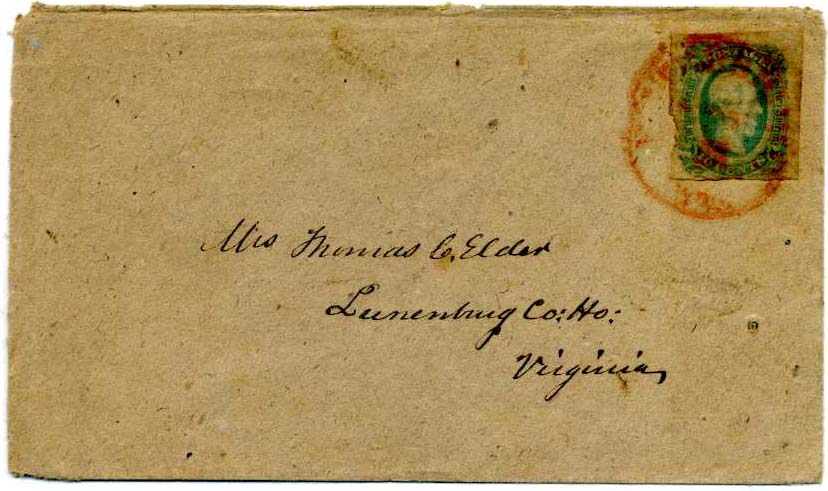 Mrs Thomas C. Elder
Lunenburg Co: Ho:
Virginia